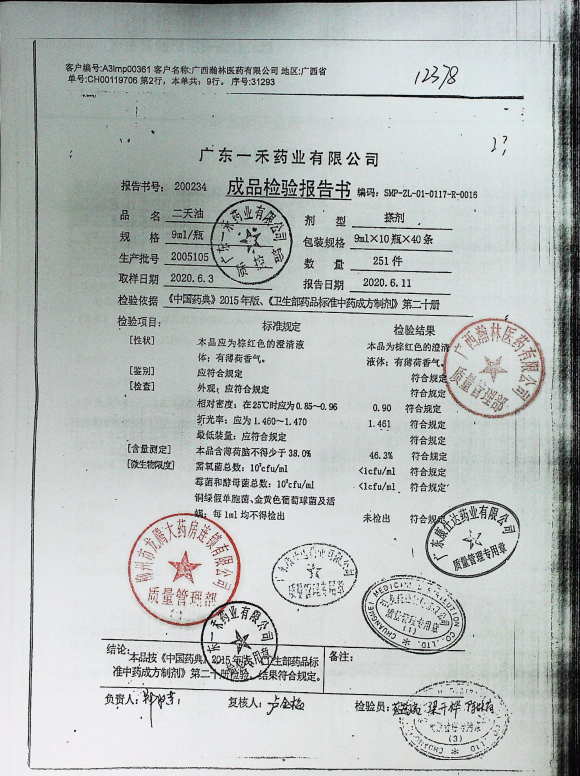 客户编号:A3Imp00361 客户名称:广西瀚林医药有限公司 地区:广西省
单号:CH00119706 第2行，本单共：9行。 序号:31293
12378
广东一禾药业有限公司
报告书号：200234 成品检验报告书 编码：SMP-ZL-01-0117-R-0016
品 名 二天油 剂 型 搽剂
规 格 9ml/瓶 包装规格 9ml×10瓶×40条
生产批号 2005105 数 量 251件
取样日期 2020.6.3 报告日期 2020.6.11
检验依据 《中国药典》2015年版、《卫生部药品标准中药成方制剂》第二十册
检验项目： 标准规定 检验结果
[性状] 本品应为棕红色的澄清液 本品为棕红色的澄清
体；有薄荷香气。 液体；有薄荷香气。
[鉴别] 应符合规定 符合规定
[检查] 外观：应符合规定 符合规定
相对密度：在25℃时应为0.85~0.96 0.90 符合规定
折光率：应为1.460~1.470 1.461 符合规定
最低装量：应符合规定 符合规定
[含量测定] 本品含薄荷脑不得少于38.0% 46.3% 符合规定
[微生物限度] 需氧菌总数：10²cfu/ml <1cfu/ml 符合规定
霉菌和酵母菌总数：10¹cfu/ml <1cfu/ml 符合规定
铜绿假单胞菌、金黄色葡萄球菌及
每1ml均不得检出 未检出 符合规
广东一禾药业有限公司
质控部
广西瀚林医药有限公司
质量管理部
柳州市龙腾大药房连锁有限公司
质量管理部
广东康仕达药业有限公司
质量管理专用章
MEDICINE
CO.,LTD
(1)
广东一禾药业有限公司
结论： 备注：
本品按《中国药典》2015年版、《卫生部药品标
准中药成方制剂》第二十册检验，结果符合规定。
负责人： 复核人：卢金梅 检验员：
(3)